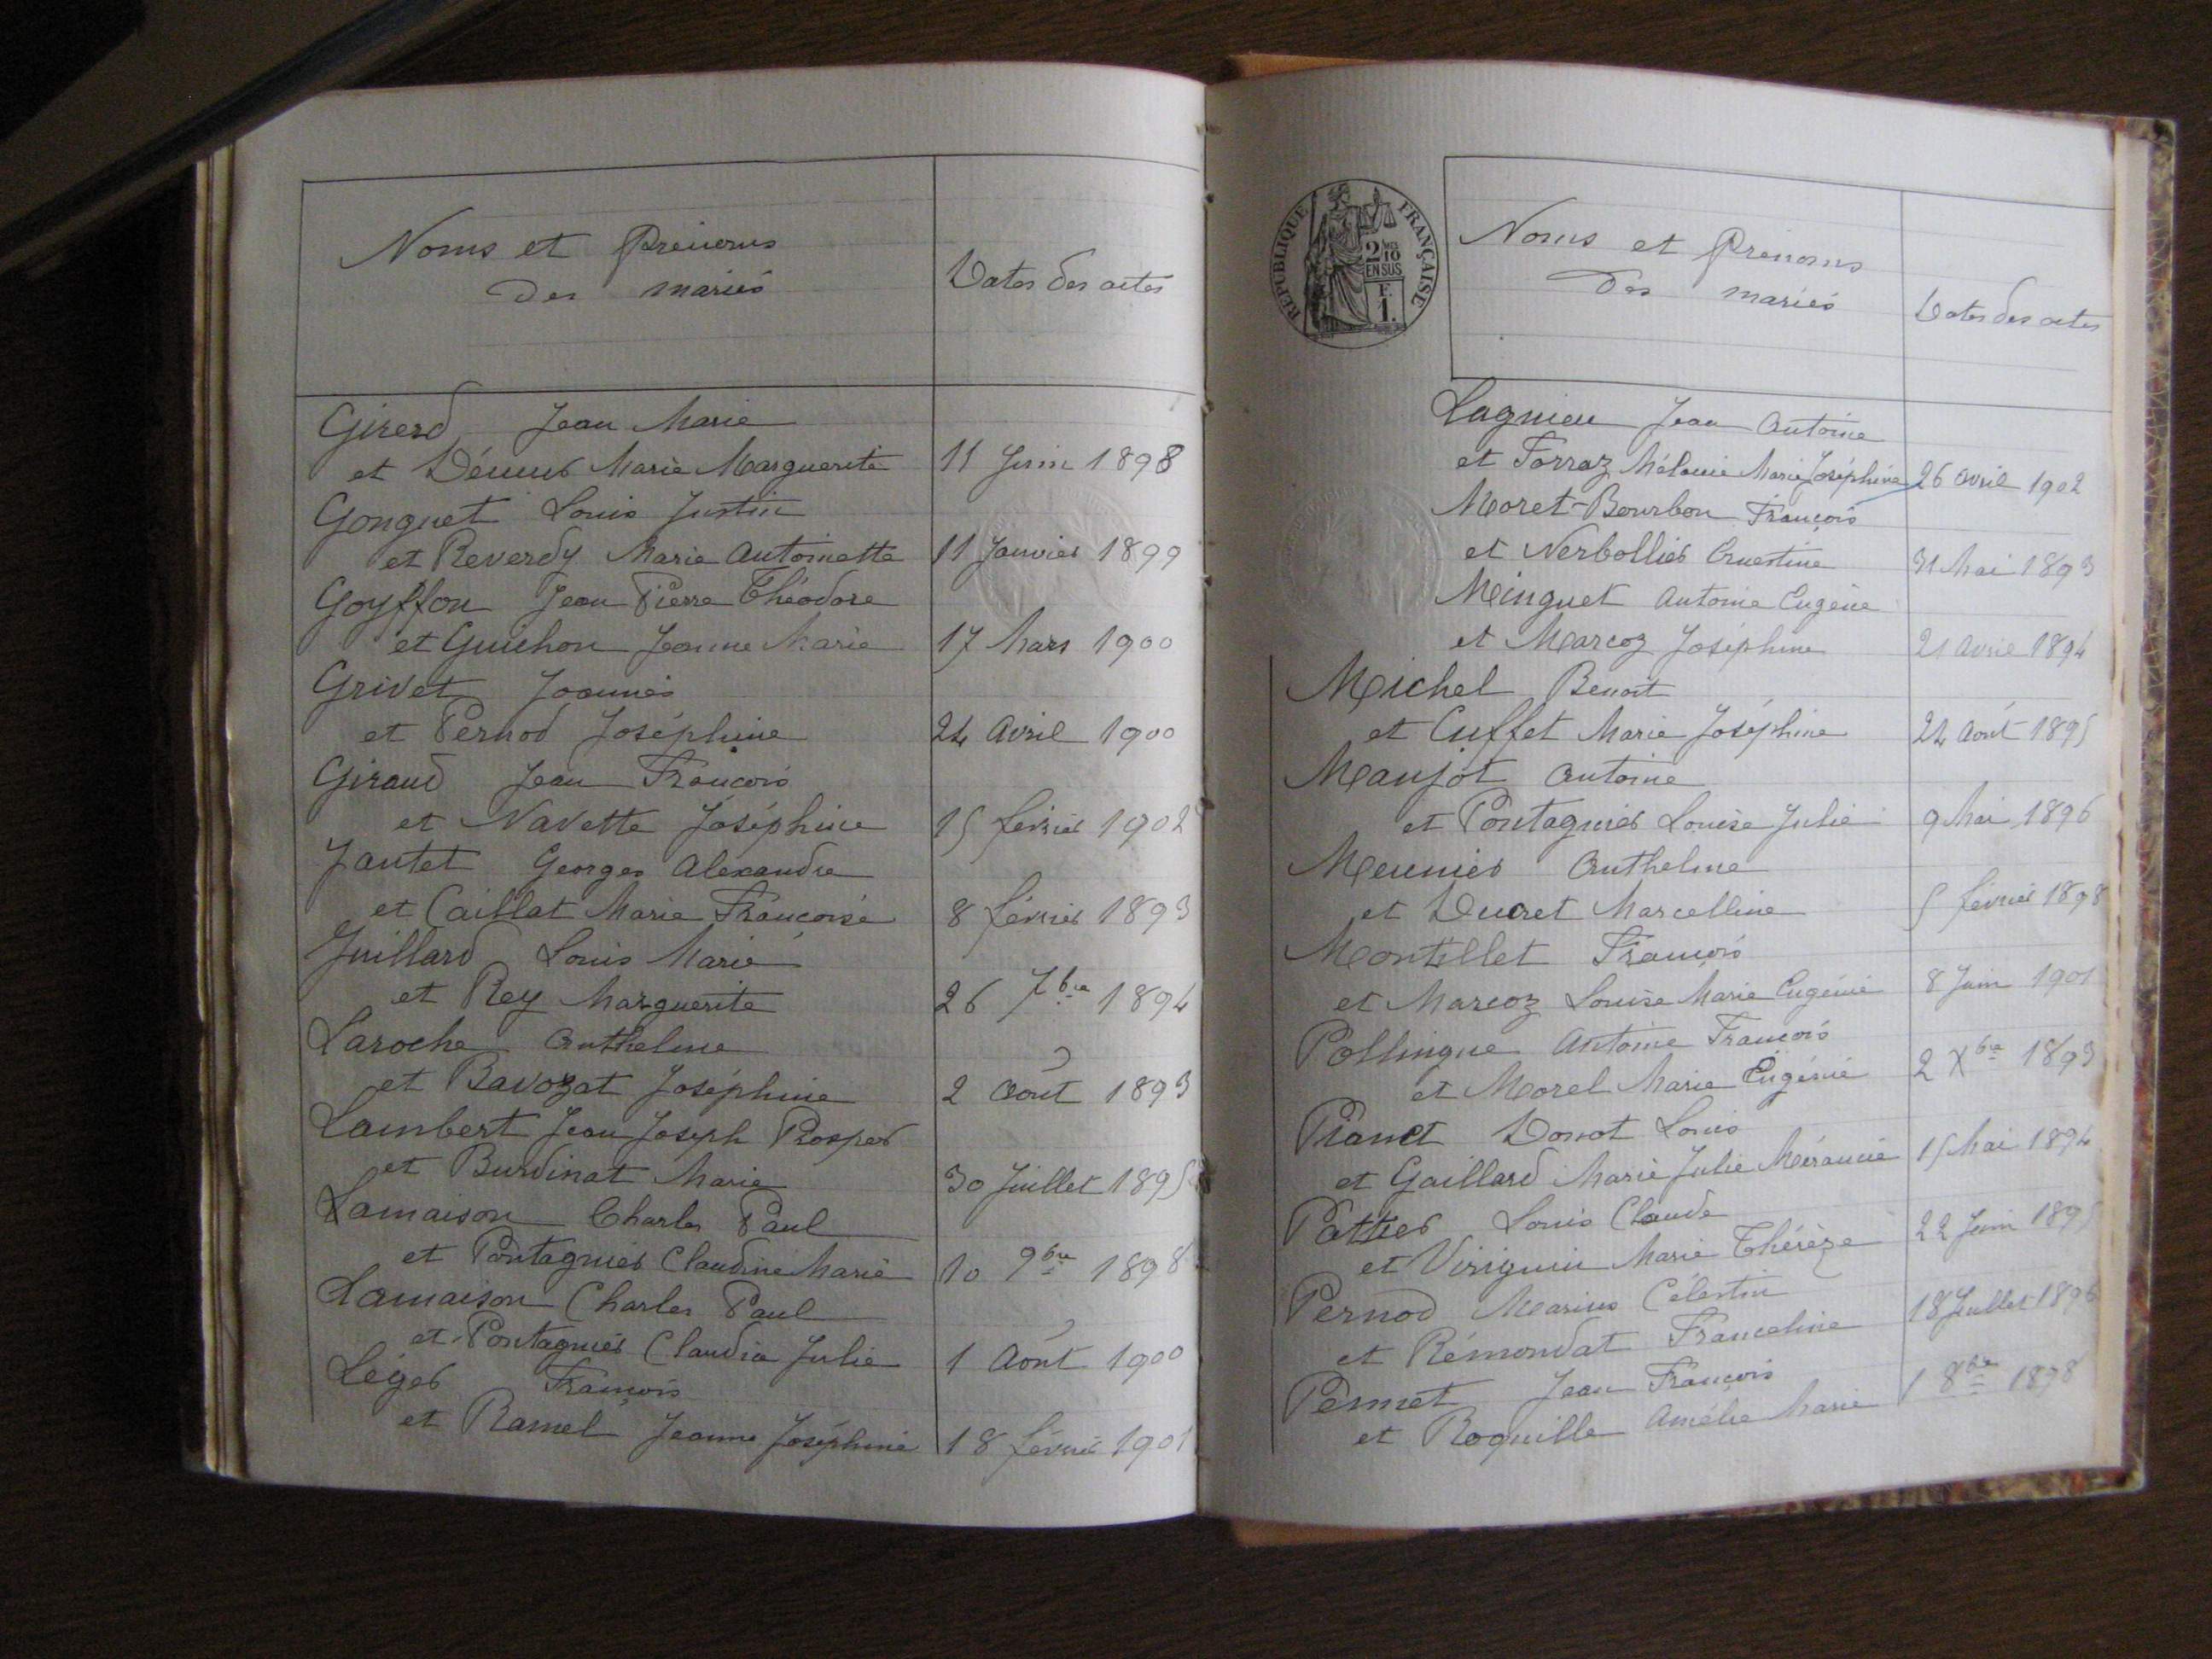 Noms et Prénoms
des mariés
Dates des actes
Girerd Jean Marie
et Marie Marguerite 11 Juin 1898
Gonguet Louis Justin
et Reverdy Marie Antoinette 11 Janvier 1899
Goyffon Jean Pierre Théodore
et Guichon Jeanne Marie 17 Mars 1900
Grivet Joannès
et Pernod Joséphine 24 Avril 1900
Giraud Jean François
et Navette Joséphine 15 février 1902
Jantet Georges Alexandre
et Caillat Marie Françoise 8 février 1893
Juillard Louis Marie
et Rey Marguerite 26 7bre 1894
Laroche Anthelme
et Bavozat Joséphine 2 Août 1893
Lambert Jean Joseph Prosper
et Burdinat Marie 30 Juillet 1895
Lamaison Charles Paul
et Pontagnier Claudine Marie 10 9bre 1898
Lamaison Charles Paul
et Pontagnier Claudia Julie 1 Août 1900
Léger François
et Ramel Jeanne Joséphine 18 février 1901
RÉPUBLIQUE FRANÇAISE
2/10 EN SUS
F. 1.
Noms et Prénoms
des mariés
Dates des actes
Lagnieu Jean Antoine
et Forraz Mélanie Marie Joséphine 26 Avril 1902
Moret-Bourbon François
et Nerbollier Ernestine 31 Mai 1893
Minguet Antoine Eugène
et Marcoz Joséphine 21 Avril 1894
Michel Benoit
et Cuffet Marie Joséphine 24 Août 1895
Manjot Antoine
et Pontagnier Louise Julie 9 Mai 1896
Meunier Anthelme
et Ducret Marcelline 5 février 1898
Montillet François
et Marcoz Louise Marie Eugénie 8 Juin 1901
Pollingue Antoine François
et Morel Marie Eugénie 2 Xbre 1893
Pianet Donat Louis
et Gaillard Marie Julie 15 Mai 1894
Pattier Louis Claude
et Viriguin Marie Thérèze 22 Juin 1895
Pernod Marius Célestin
et Rémondat Franceline 18 Juillet 1896
Jean François
et Roquille Amélie Marie 1 8bre 1898